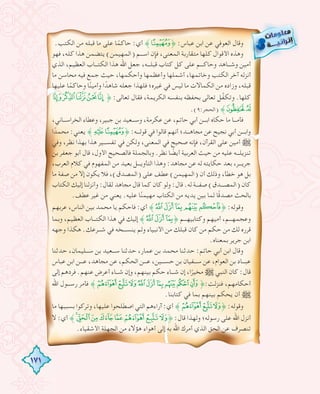 معلومات إثرائية
وقال العوفي عن ابن عباس: ﴿وَمُهَيْمِنًا﴾ أي: حاكمًا على ما قبله من الكتب.
وهذه الأقوال كلها متقاربة المعنى، فإن اسم (المهيمن) يتضمن هذا كله، فهو
أمين وشاهد وحاكم على كل كتاب قبله، جعل الله هذا الكتاب العظيم، الذي
أنزله آخر الكتب وخاتمها، أشملها وأعظمها وأحكمها، حيث جمع فيه محاسن ما
قبله، وزاده من الكمالات ما ليس في غيره؛ فلهذا جعله شاهدًا وأمينًا وحاكمًا عليها
كلها. وتكفّل تعالى بحفظه بنفسه الكريمة، فقال تعالى: ﴿إِنَّا نَحْنُ نَزَّلْنَا الذِّكْرَ وَإِنَّا
لَهُ لَحَافِظُونَ﴾ [الحجر:٩]
فأما ما حكاه ابن أبي حاتم، عن عكرمة، وسعيد بن جبير، وعطاء الخراساني،
وابن أبي نجيح عن مجاهد؛ أنهم قالوا في قوله: ﴿وَمُهَيْمِنًا عَلَيْهِ﴾ يعني: محمدًا
ﷺ أمين على القرآن، فإنه صحيح في المعنى، ولكن في تفسير هذا بهذا نظر، وفي
تنزيله عليه من حيث العربية أيضًا نظر. وبالجملة فالصحيح الأول، قال أبو جعفر بن
جرير، بعد حكايته له عن مجاهد: وهذا التأويل بعيد من المفهوم في كلام العرب،
بل هو خطأ، وذلك أن (المهيمن) عطف على (المصدق)، فلا يكون إلا من صفة ما
كان (المصدق) صفة له. قال: ولو كان كما قال مجاهد لقال: وأنزلنا إليك الكتاب
بالحق مصدقًا لما بين يديه من الكتاب مهيمنًا عليه. يعني من غير عطف.
وقوله: ﴿فَاحْكُم بَيْنَهُم بِمَا أَنزَلَ اللَّهُ﴾ أي: فاحكم يا محمد بين الناس: عربهم
وعجمهم، أميهم وكتابيهم ﴿بِمَا أَنزَلَ اللَّهُ﴾ إليك في هذا الكتاب العظيم، وبما
قرره لك من حكم من كان قبلك من الأنبياء ولم ينسخه في شرعك. هكذا وجهه
ابن جرير بمعناه.
وقال ابن أبي حاتم: حدثنا محمد بن عمار، حدثنا سعيد بن سليمان، حدثنا
عباد بن العوام، عن سفيان بن حسين، عن الحكم، عن مجاهد، عن ابن عباس
قال: كان النبي ﷺ مخيرًا، إن شاء حكم بينهم، وإن شاء أعرض عنهم. فردهم إلى
أحكامهم، فنزلت: ﴿وَأَنِ احْكُم بَيْنَهُم بِمَا أَنزَلَ اللَّهُ وَلَا تَتَّبِعْ أَهْوَاءَهُمْ﴾ فأمر رسول الله
ﷺ أن يحكم بينهم بما في كتابنا.
وقوله: ﴿وَلَا تَتَّبِعْ أَهْوَاءَهُمْ﴾ أي: آراءهم التي اصطلحوا عليها، وتركوا بسببها ما
أنزل الله على رسوله؛ ولهذا قال: ﴿وَلَا تَتَّبِعْ أَهْوَاءَهُمْ عَمَّا جَاءَكَ مِنَ الْحَقِّ﴾ أي: لا
تنصرف عن الحق الذي أمرك الله به إلى أهواء هؤلاء من الجهلة الأشقياء.
١٧١